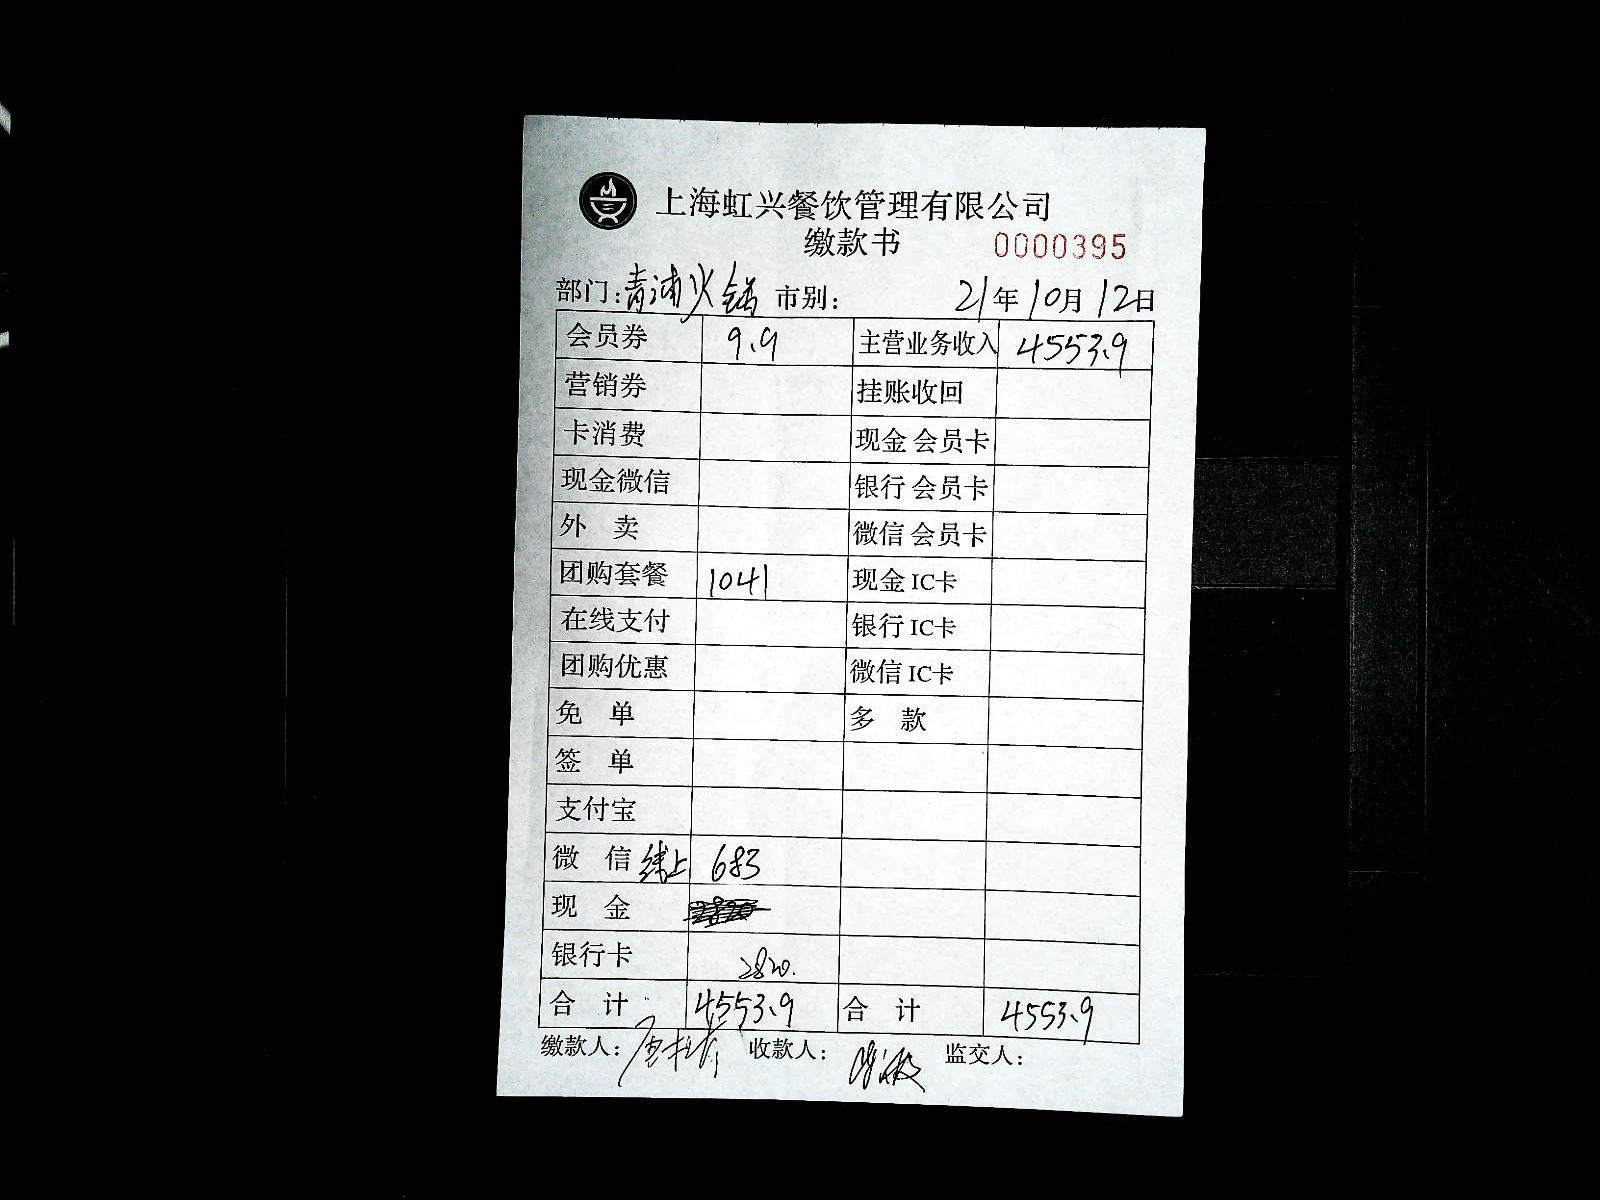 上海虹兴餐饮管理有限公司
缴款书 0000395
部门:青浦火锅 市别: 21年10月12日
会员券 9.9 主营业务收入 4553.9
营销券 挂账收回
卡消费 现金 会员卡
现金微信 银行 会员卡
外 卖 微信 会员卡
团购套餐 1041 现金 IC卡
在线支付 银行 IC卡
团购优惠 微信 IC卡
免 单 多 款
签 单
支付宝
微 信 线上 683
现 金
银行卡 2820.
合 计 4553.9 合 计 4553.9
缴款人: 收款人: 监交人: